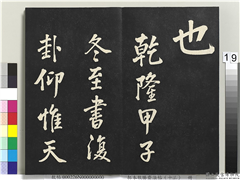 也
乾隆甲子
冬至書復
卦仰惟天
19